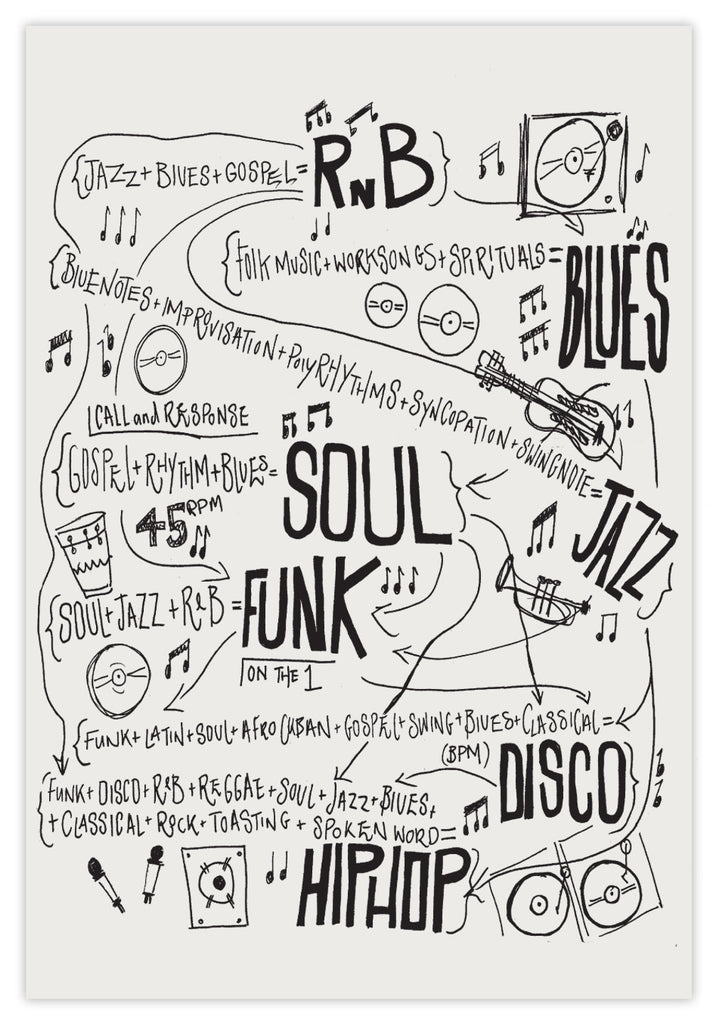 {JAZZ+BLUES+GOSPEL= RNB}
{FOLK MUSIC+WORKSONGS+SPIRITUALS= BLUES
{BLUENOTES+IMPROVISATION+POLYRHYTHMS+SYNCOPATION+SWINGNOTE= JAZZ}
CALL and RESPONSE
{GOSPEL+RHYTHM+BLUES= SOUL}
45RPM
{SOUL+JAZZ+R&B= FUNK
ON THE 1
{FUNK+LATIN+SOUL+AFRO CUBAN+GOSPEL+SWING+BLUES+CLASSICAL=
(BPM) DISCO}
{FUNK+DISCO+R&B+REGGAE+SOUL+JAZZ+BLUES+
+CLASSICAL+ROCK+TOASTING+SPOKEN WORD=
HIPHOP}